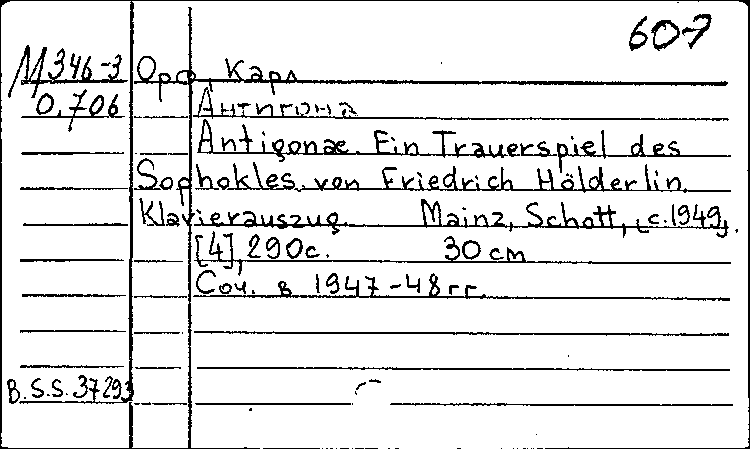 60-7
М346-3 Орф, Карл
О.706 Антигона
Antigonae. Ein Trauerspiel des
Sophokles von Friedrich Hölderlin.
Klavierauszug. Mainz, Schott, [c.1949].
[4], 290с. 30 cm
Соч. в 1947-48гг.
B.S.S. 37293